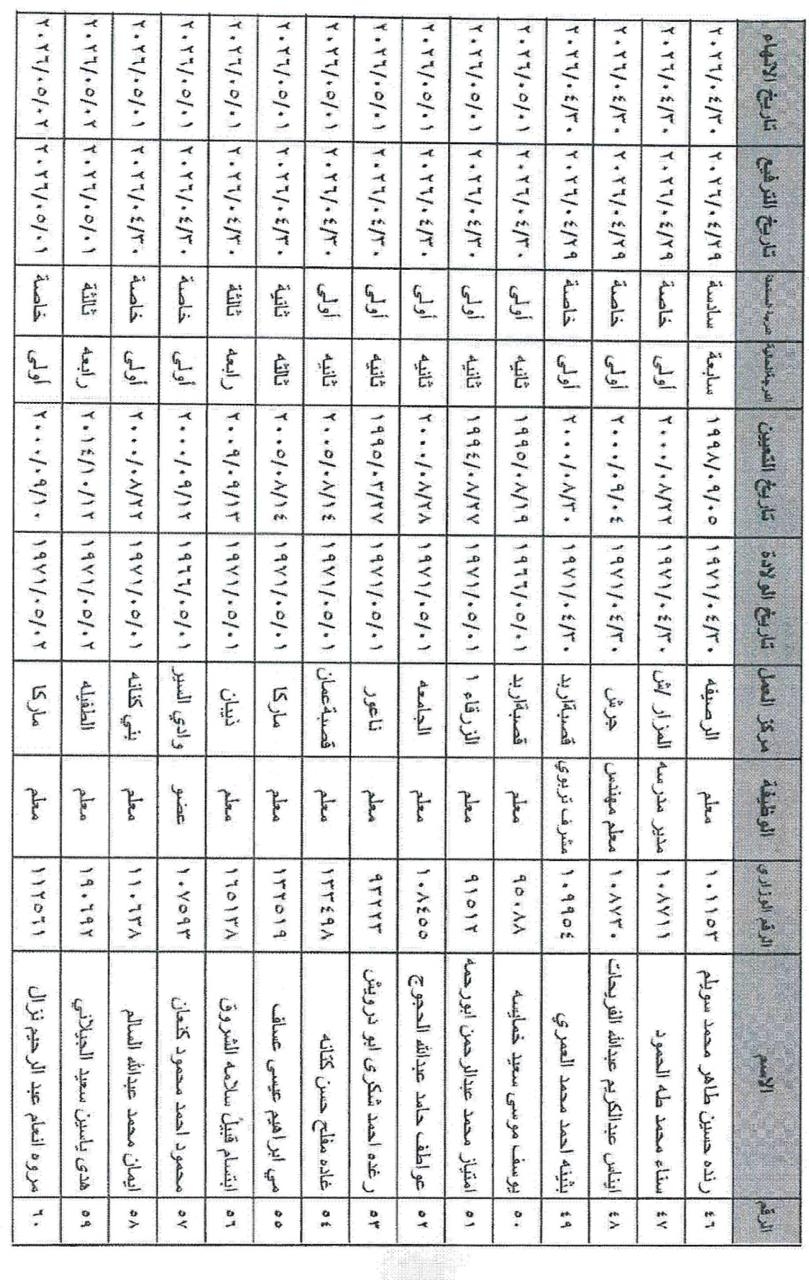 الرقم الاسم الرقم الوزاري الوظيفة مركز العمل تاريخ الولادة تاريخ التعيين الدرجة الحالية الدرجة المستحقة تاريخ الترفيع تاريخ الانهاء
٤٦ رنده حسين طاهر محمد سويلم ١٠١١٥٣ معلم الرصيفه ١٩٧١/٠٤/٣٠ ١٩٩٨/٠٩/٠٥ سابعة سادسة ٢٠٢٦/٠٤/٢٩ ٢٠٢٦/٠٤/٣٠
٤٧ سناء محمد طه الحمود ١٠٨٧١١ مدير مدرسه المزار /ش ١٩٧١/٠٤/٣٠ ٢٠٠٠/٠٨/٢٢ أولى خاصة ٢٠٢٦/٠٤/٢٩ ٢٠٢٦/٠٤/٣٠
٤٨ ايناس عبدالكريم عبدالله الفريحات ١٠٨٧٣٠ معلم مهندس جرش ١٩٧١/٠٤/٣٠ ٢٠٠٠/٠٩/٠٤ أولى خاصة ٢٠٢٦/٠٤/٢٩ ٢٠٢٦/٠٤/٣٠
٤٩ بثينه احمد محمد العمري ١٠٩٩٥٤ مشرف تربوي قصبةاربد ١٩٧١/٠٤/٣٠ ٢٠٠٠/٠٨/٣٠ أولى خاصة ٢٠٢٦/٠٤/٢٩ ٢٠٢٦/٠٤/٣٠
٥٠ يوسف موسى سعيد خمايسه ٩٥٠٨٨ معلم قصبةاربد ١٩٦٦/٠٥/٠١ ١٩٩٥/٠٨/١٩ ثانيه أولى ٢٠٢٦/٠٤/٣٠ ٢٠٢٦/٠٥/٠١
٥١ امتياز محمد عبدالرحمن ابورحمه ٩١٥١٢ معلم الزرقاء ١ ١٩٧١/٠٥/٠١ ١٩٩٤/٠٨/٢٧ ثانيه أولى ٢٠٢٦/٠٤/٣٠ ٢٠٢٦/٠٥/٠١
٥٢ عواطف حامد عبدالله الحجوج ١٠٨٤٥٥ معلم الجامعه ١٩٧١/٠٥/٠١ ٢٠٠٠/٠٨/٢٨ ثانيه أولى ٢٠٢٦/٠٤/٣٠ ٢٠٢٦/٠٥/٠١
٥٣ رغده احمد شكرى ابو درويش ٩٣٢٢٣ معلم ناعور ١٩٧١/٠٥/٠١ ١٩٩٥/٠٣/٢٧ ثانيه أولى ٢٠٢٦/٠٤/٣٠ ٢٠٢٦/٠٥/٠١
٥٤ غاده مفلح حسن كتانه ١٣٣٤٩٨ معلم قصبةعمان ١٩٧١/٠٥/٠١ ٢٠٠٥/٠٨/١٤ ثانيه أولى ٢٠٢٦/٠٤/٣٠ ٢٠٢٦/٠٥/٠١
٥٥ مي ابراهيم عيسى عساف ١٣٢٥١٩ معلم ماركا ١٩٧١/٠٥/٠١ ٢٠٠٥/٠٨/١٤ ثالثه ثانية ٢٠٢٦/٠٤/٣٠ ٢٠٢٦/٠٥/٠١
٥٦ ابتسام قبيل سلامه الشروق ١٦٥١٣٨ معلم ذيبان ١٩٧١/٠٥/٠١ ٢٠٠٩/٠٩/١٣ رابعه ثالثة ٢٠٢٦/٠٤/٣٠ ٢٠٢٦/٠٥/٠١
٥٧ محمود احمد محمود كنعان ١٠٧٥٩٣ عضو وادي السير ١٩٦٦/٠٥/٠١ ٢٠٠٠/٠٩/١٢ أولى خاصة ٢٠٢٦/٠٤/٣٠ ٢٠٢٦/٠٥/٠١
٥٨ ايمان محمد عبدالله السالم ١١٠٦٣٨ معلم بني كنانه ١٩٧١/٠٥/٠١ ٢٠٠٠/٠٨/٢٢ أولى خاصة ٢٠٢٦/٠٤/٣٠ ٢٠٢٦/٠٥/٠١
٥٩ هدى ياسين سعيد الجيلاني ١٩٠٦٩٢ معلم الطفيله ١٩٧١/٠٥/٠٢ ٢٠١٤/١٠/١٢ رابعه ثالثة ٢٠٢٦/٠٥/٠١ ٢٠٢٦/٠٥/٠٢
٦٠ مروه انعام عبد الرحيم نزال ١١٢٥٦١ معلم ماركا ١٩٧١/٠٥/٠٢ ٢٠٠٠/٠٩/١٠ أولى خاصة ٢٠٢٦/٠٥/٠١ ٢٠٢٦/٠٥/٠٢